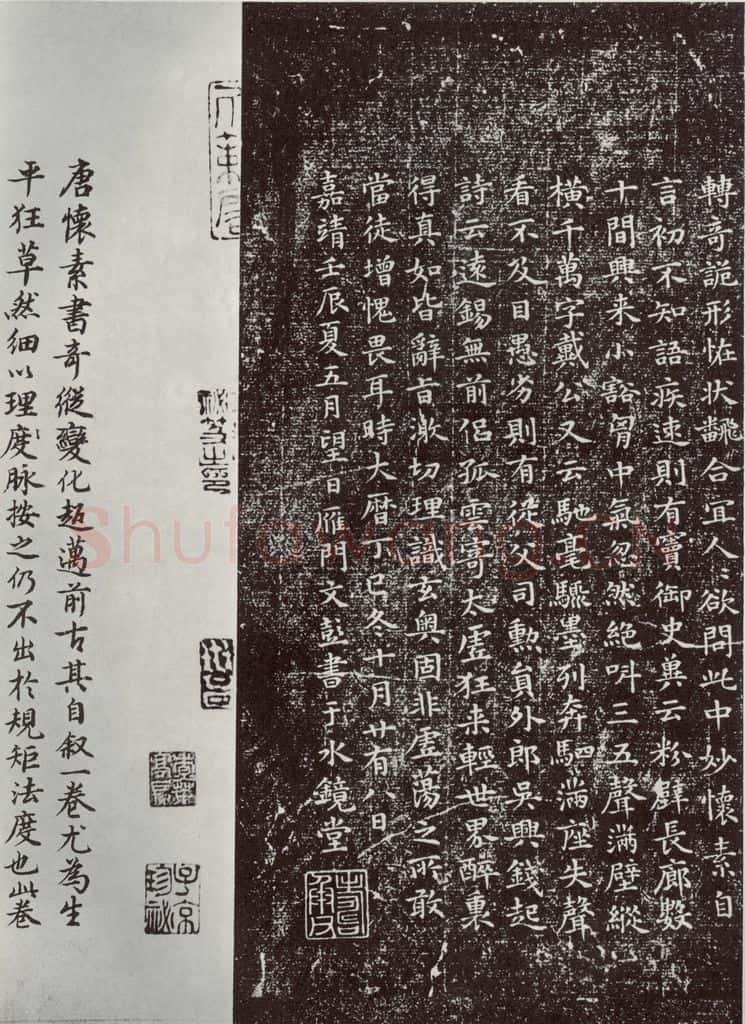 轉奇詭形恠狀飜合宜人〻欲問此中妙懷素自
言初不知語疾速則有竇御史冀云粉壁長廊數
十間興来小豁胷中氣忽然絶叫三五聲滿壁縱
橫千萬字戴公又云馳毫驟墨列奔駟滿座失聲
看不及目愚劣則有從父司勲員外郎吳興錢起
詩云遠錫無前侣孤雲寄太虚狂来輕世界醉裏
得真如皆辭旨激切理識玄奥固非虚蕩之所敢
當徒增愧畏耳時大暦丁巳冬十月廿有八日
嘉靖壬辰夏五月望日雁門文彭書于水鏡堂
唐懷素書奇縱變化超邁前古其自叙一卷尤為生
平狂草然細以理度脉按之仍不出於規矩法度也此卷
子京
珍祕
Shufawang.CN